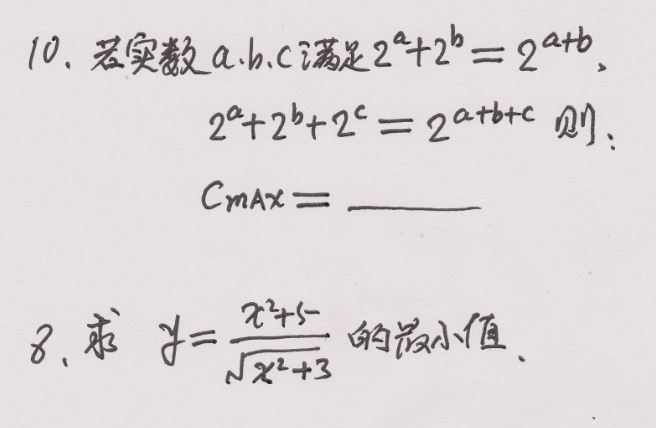 10. 若实数 a.b.c 满足 2^a+2^b=2^{a+b}、
2^a+2^b+2^c=2^{a+b+c} 则:
CmAx=______
8、求 y=\frac{x^2+5}{\sqrt{x^2+3}} 的最小值.